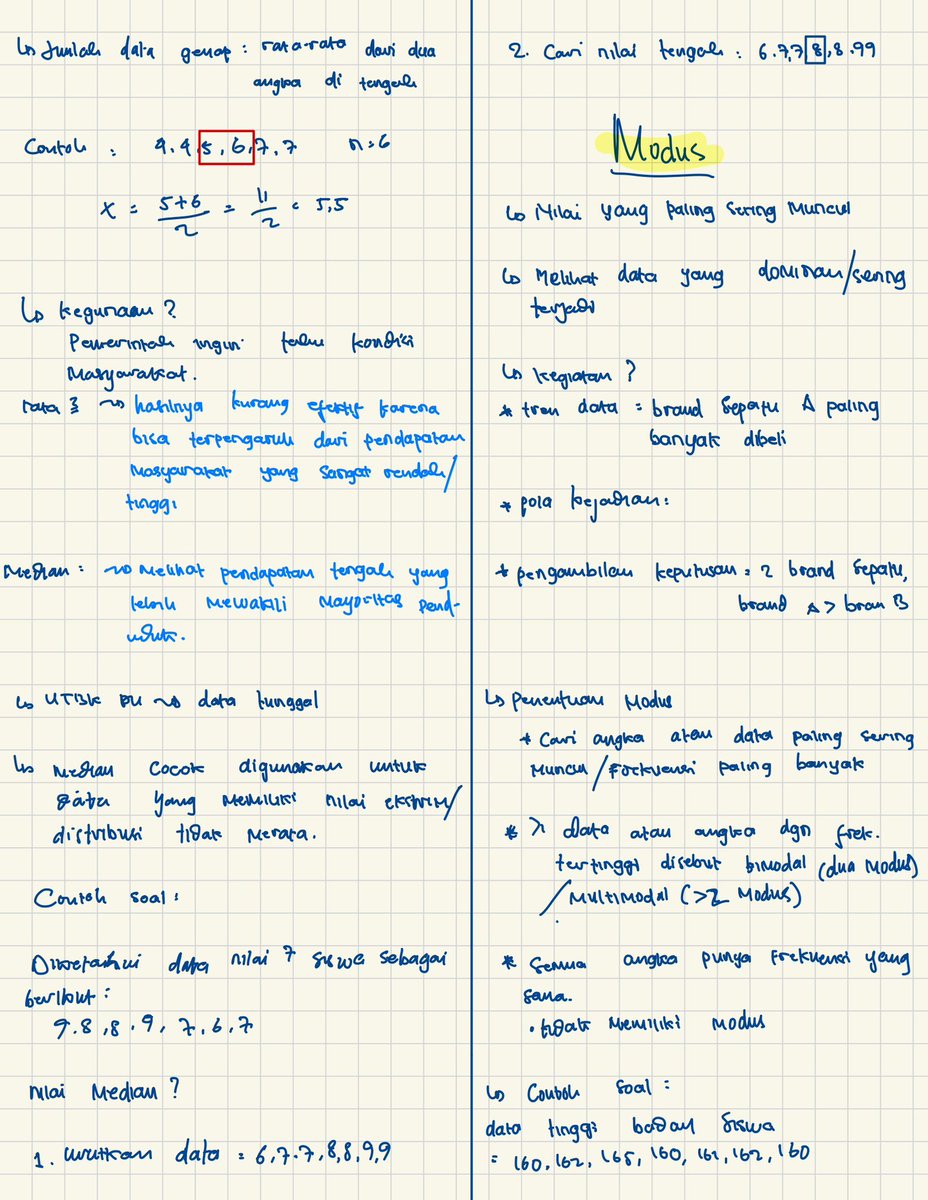 ↳ Jumlah data genap : rata-rata dari dua
angka di tengah
Contoh : 4, 4, 5, 6, 7, 7 n = 6
x = 5+6/2 = 11/2 = 5,5
↳ Kegunaan ?
Pemerintah ingin tahu kondisi
Masyarakat.
rata² ~> hasilnya kurang efektif karena
bisa terpengaruh dari pendapatan
Masyarakat yang sangat rendah/
tinggi
Median : ~> Melihat pendapatan tengah yang
lebih mewakili Mayoritas pend-
uduk.
↳ UTBK PU ~> data tunggal
↳ Median cocok digunakan untuk
data yang Memiliki nilai ekstrim/
distribusi tidak Merata.
Contoh soal :
Diketahui data nilai 7 siswa sebagai
berikut :
9, 8, 8, 9, 7, 6, 7
nilai Median ?
1. urutkan data = 6, 7, 7, 8, 8, 9, 9
2. Cari nilai tengah : 6, 7, 7, 8, 8, 99
Modus
↳ Nilai yang paling sering Muncul
↳ Melihat data yang dominan/sering
terjadi
↳ Kegiatan ?
* tren data = brand sepatu A paling
banyak dibeli
* pola kejadian :
* pengambilan keputusan = 2 brand sepatu,
brand A > bran B
↳ Penentuan Modus
* Cari angka atau data paling sering
Muncul/Frekuensi paling banyak
* > 1 data atau angka dgn frek.
tertinggi disebut bimodal (dua Modus)
/Multimodal (>2 Modus)
* Semua angka punya Frekuensi yang
sama.
• tidak Memiliki Modus
↳ Contoh soal :
data tinggi badan siswa
= 160, 162, 165, 160, 161, 162, 160